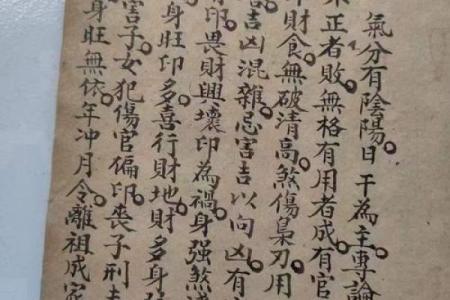 氣分有陰陽日干為主專論
正者敗無格有用者成有官
印財食無破清高煞傷梟刃用
吉凶混雜忌害吉以向凶有
印畏財興壞印為禍身強煞
身旺印多喜行財地財多身
害子女犯傷官偏印喪子刑
身旺無依年冲月令離祖成家